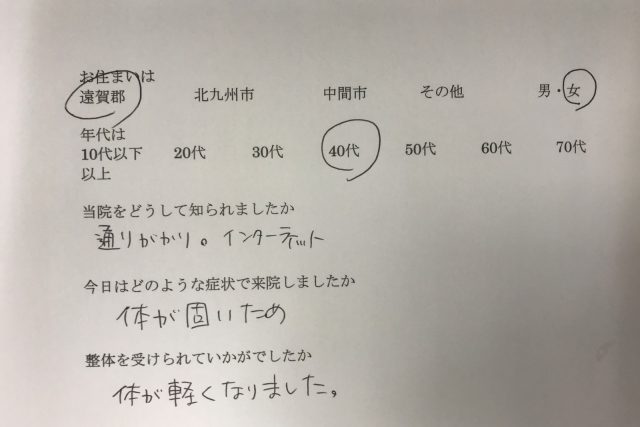 お住まいは
遠賀郡 北九州市 中間市 その他 男・女
年代は
10代以下 20代 30代 40代 50代 60代 70代
以上
当院をどうして知られましたか
通りがかり。インターネット
今日はどのような症状で来院しましたか
体が固いため
整体を受けられていかがでしたか
体が軽くなりました。